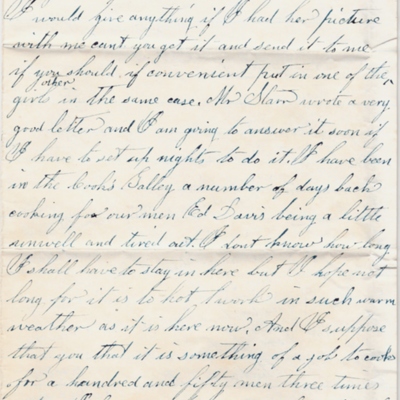 I would give anything if I had her picture
with me cant you get it and send it to me
if you should if convenient put in one of the
other
girls in the same case. Mr Starr wrote a very
good letter and I am going to answer it soon if
I have to set up nights to do it. I have been
in the Cooks Galley a number of days back
cooking for our men Ed Davis being a little
unwell and tired out. I dont know how long
I shall have to stay in here but I hope not
long for it is to hot work in such warm
weather as it is here now. And I suppose
that you that it is something of a job to cook
for a hundred and fifty men three times